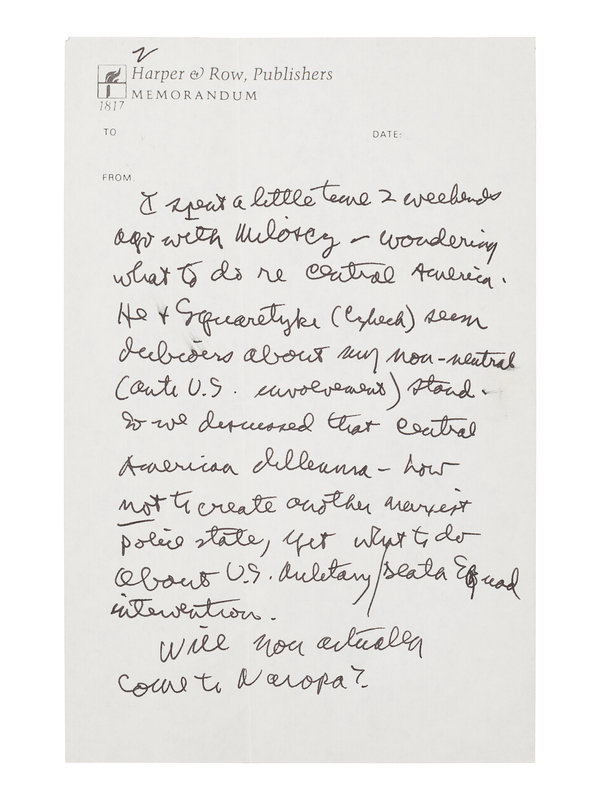 2
Harper & Row, Publishers
MEMORANDUM
1817
TO DATE:
FROM.
I spent a little time 2 weekends
ago with – wondering
what to do re Central America.
He + (Czhech) seem
dubious about my non-neutral
(anti U.S. involvement) stand.
So we discussed that Central
American dillemma – how
not to create another marxist
police state, yet what to do
about U.S. Military/death Squad
intervention.
Will you actually
come to Naropa?